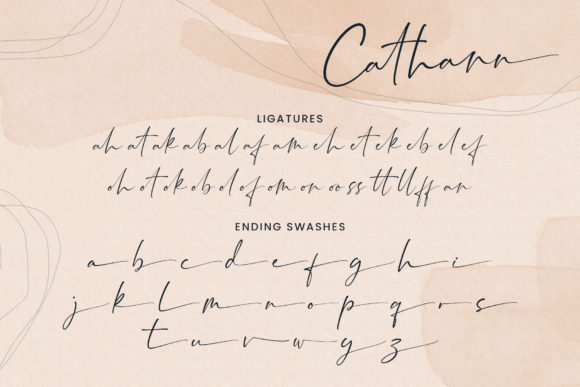 Cathann
LIGATURES
ah at ak ab al af am eh et ek eb el ef
oh ot ok ob ol of om on oo ss tt ll ff an
ENDING SWASHES
a b c d e f g h i
j k l m n o p q r s
t u v w y z